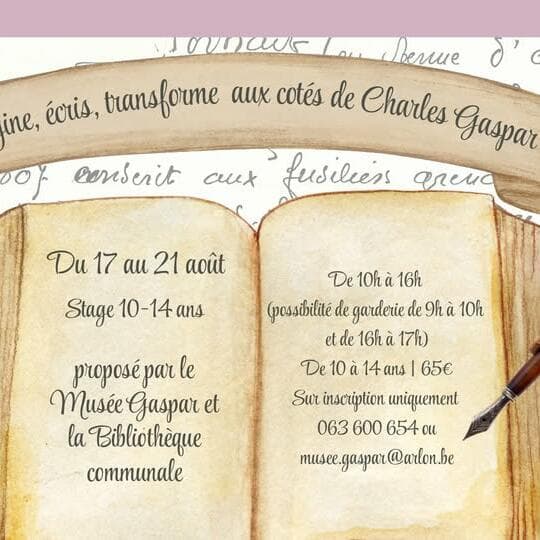 aux
gine, écris, transforme aux cotés de Charles Gaspar
conscrit aux fusiliers
Du 17 au 21 août
Stage 10-14 ans
proposé par le
Musée Gaspar et
la Bibliothèque
communale
De 10h à 16h
(possibilité de garderie de 9h à 10h
et de 16h à 17h)
De 10 à 14 ans | 65€
Sur inscription uniquement
063 600 654 ou
musee.gaspar@arlon.be